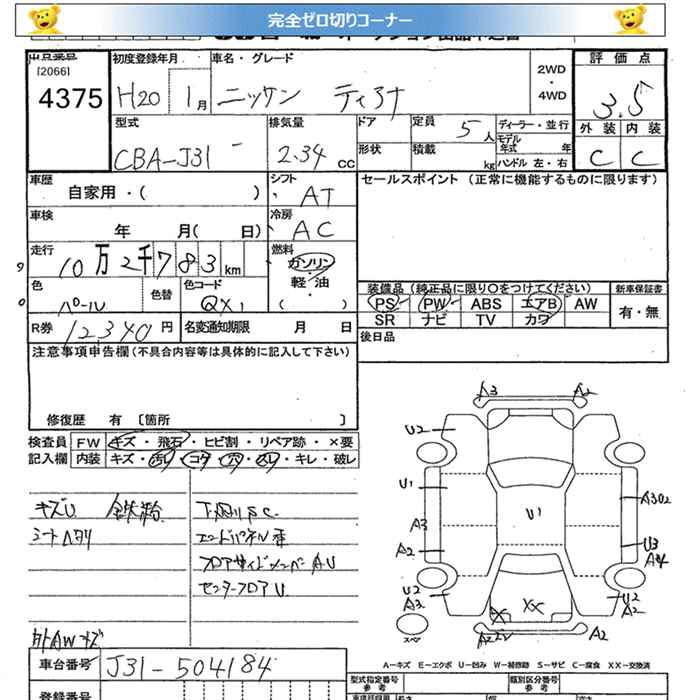 完全ゼロ切りコーナー
[2066]
4375
初度登録年月
H20 1月
車名・グレード
ニッサン ティアナ
2WD
・
4WD
評価点
3.5
外装 内装
C C
型式
CBA-J31
排気量
2.34 CC
ドア
形状
定員 5人
積載 kg
ディーラー・並行
モデル年式 年
ハンドル 左・右
車歴
自家用・( )
シフト
AT
セールスポイント (正常に機能するものに限ります)
車検
年 月( 日)
冷房
AC
走行
10万2千783km
燃料
ガソリン
軽・油
( )
色
パール
色替
色コード
QX1
装備品 (純正品に限り○をつけてください)
PS PW ABS エアB AW
SR ナビ TV カワ
新車保証書
有・無
R券 12340円
名変通知期限 月 日
後日品
注意事項申告欄(不具合内容等は具体的に記入して下さい)
修復歴 有 〔箇所 〕
検査員
記入欄
FW キズ・飛石・ヒビ割・リペア跡・×要
内装 キズ・汚レ・コゲ・穴・スレ・キレ・破レ
キズU 鉄粉
シートハタリ
下廻りS.C.
エンドパネル歪
フロアサイドメンバーAU
センターフロアU
外AWキズ
A3 A2
U2
U1
A3
A2
U2
A3
U1
A302
U3
A4
U2
A2
X XX
A2
スペア
A-キズ E-エクボ U-凹み W-補修跡 S-サビ C-腐食 XX-交換済
車台番号
J31-504184
登録番号
型式指定番号
参考
類別区分番号
参考